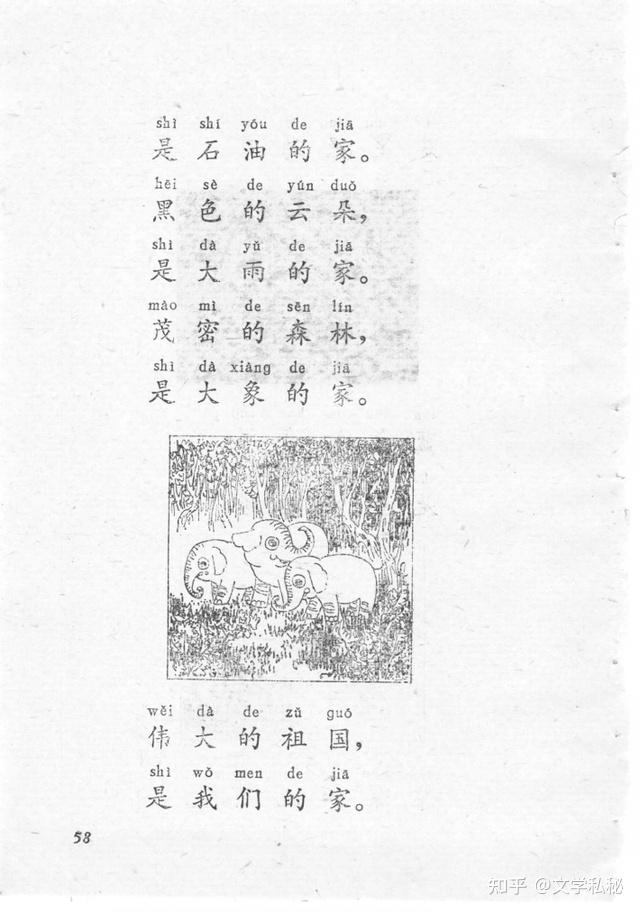 shì shí yóu de jiā
是石油的家。
hēi sè de yún duǒ
黑色的云朵,
shì dà yǔ de jiā
是大雨的家。
mào mì de sēn lín
茂密的森林,
shì dà xiàng de jiā
是大象的家。
wěi dà de zǔ guó
伟大的祖国,
shì wǒ men de jiā
是我们的家。
58
知乎 @文学私秘